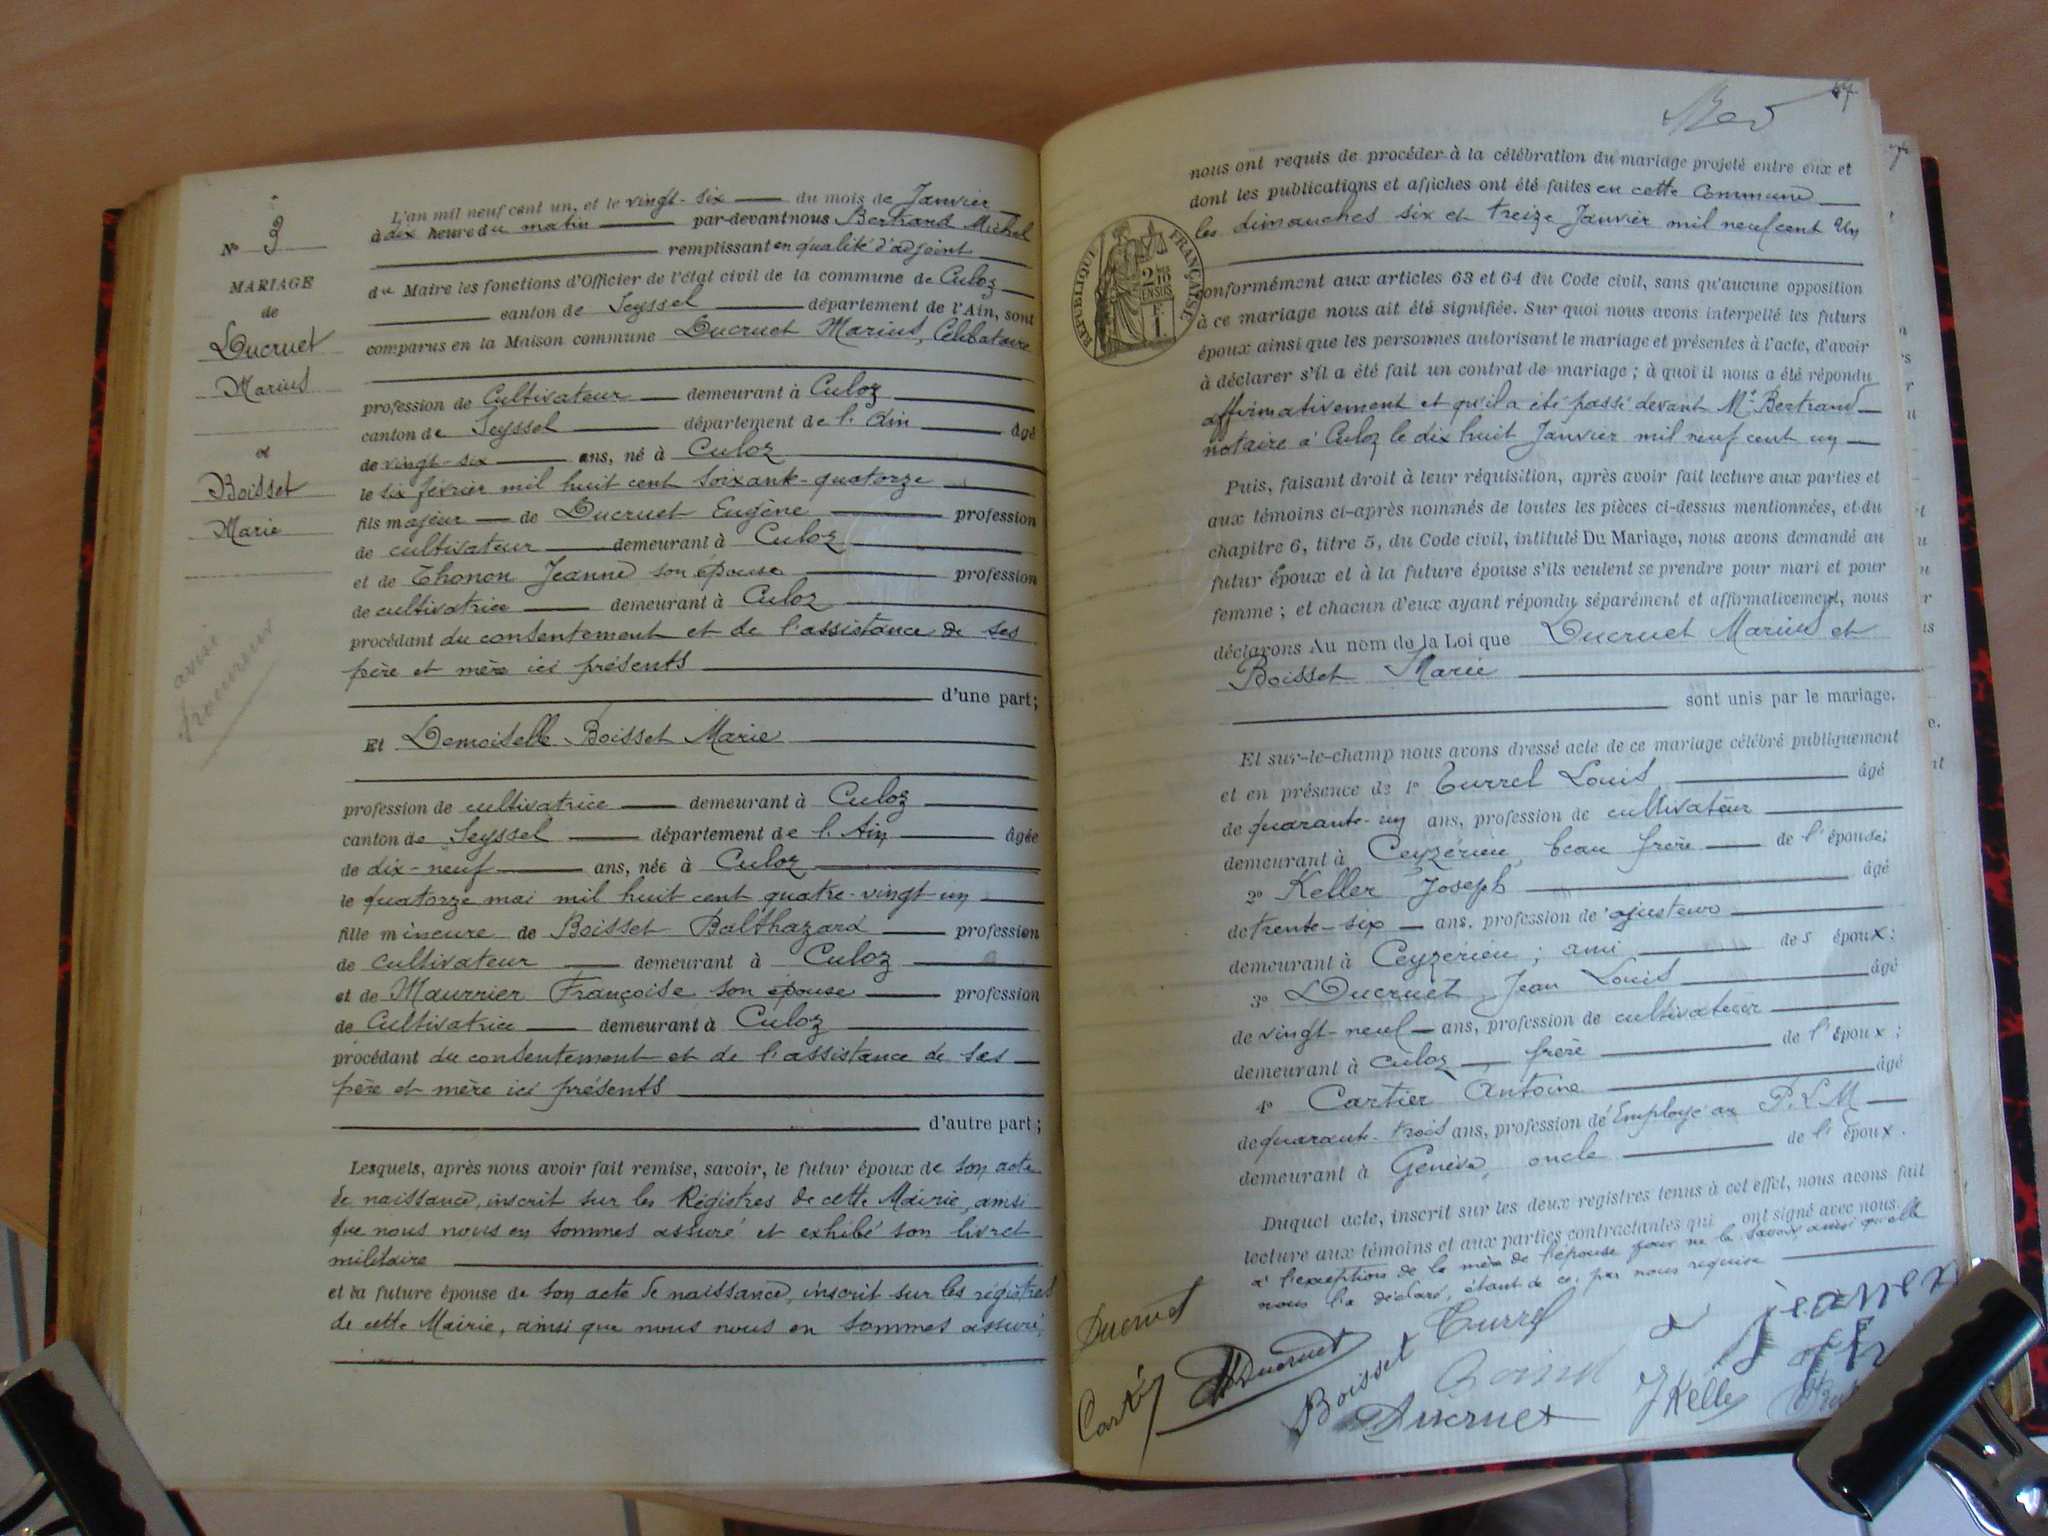 N° 3
MARIAGE
de
Ducruet
Marius
et
Boisset
Marie
avisé
procureur
L'an mil neuf cent un, et le vingt-six du mois de Janvier
à dix heure du matin par-devant nous Bertrand Michel
remplissant en qualité d'adjoint
du Maire les fonctions d'Officier de l'état civil de la commune de Culoz
canton de Seyssel département de l'Ain, sont
comparus en la Maison commune Ducruet Marius, Célibataire
profession de Cultivateur demeurant à Culoz
canton de Seyssel département de l'Ain âgé
de vingt-six ans, né à Culoz
le six février mil huit cent soixante-quatorze
fils majeur de Ducruet Eugène profession
de cultivateur demeurant à Culoz
et de Thonon Jeanne son épouse profession
de cultivatrice demeurant à Culoz
procédant du consentement et de l'assistance de ses
père et mère ici présents
d'une part;
Et Demoiselle Boisset Marie
profession de cultivatrice demeurant à Culoz
canton de Seyssel département de l'Ain âgée
de dix-neuf ans, née à Culoz
le quatorze mai mil huit cent quatre-vingt-un
fille mineure de Boisset Balthazard profession
de cultivateur demeurant à Culoz
et de Maurrier Françoise son épouse profession
de Cultivatrice demeurant à Culoz
procédant du consentement et de l'assistance de ses
père et mère ici présents
d'autre part;
Lesquels, après nous avoir fait remise, savoir, le futur époux de son acte
de naissance, inscrit sur les Régistres de cette Mairie, ainsi
que nous nous en sommes assuré et exhibé son livret
militaire
et la future épouse de son acte de naissance, inscrit sur les régistres
de cette Mairie, ainsi que nous nous en sommes assuré,
nous ont requis de procéder à la célébration du mariage projeté entre eux et
dont les publications et affiches ont été faites en cette Commune
les dimanches six et treize Janvier mil neuf cent Un
RÉPUBLIQUE FRANÇAISE
2/10 EN SUS
1 F.
conformément aux articles 63 et 64 du Code civil, sans qu'aucune opposition
à ce mariage nous ait été signifiée. Sur quoi nous avons interpellé les futurs
époux ainsi que les personnes autorisant le mariage et présentes à l'acte, d'avoir
à déclarer s'il a été fait un contrat de mariage; à quoi il nous a été répondu
affirmativement et qu'il a été passé devant Mr. Bertrand
notaire à Culoz le dix huit Janvier mil neuf cent un
Puis, faisant droit à leur réquisition, après avoir fait lecture aux parties et
aux témoins ci-après nommés de toutes les pièces ci-dessus mentionnées, et du
chapitre 6, titre 5, du Code civil, intitulé Du Mariage, nous avons demandé au
futur époux et à la future épouse s'ils veulent se prendre pour mari et pour
femme; et chacun d'eux ayant répondu séparément et affirmativement, nous
déclarons Au nom de la Loi que Ducruet Marius et
Boisset Marie
sont unis par le mariage.
Et sur-le-champ nous avons dressé acte de ce mariage célébré publiquement
et en présence de 1° Turrel Louis âgé
de quarante-un ans, profession de cultivateur
demeurant à Ceyzérieu, beau frère de l'épouse;
2° Keller Joseph âgé
de trente-six ans, profession de ajusteur
demeurant à Ceyzérieu; ami des époux;
3° Ducruet Jean Louis âgé
de vingt-neuf ans, profession de cultivateur
demeurant à Culoz frère de l'époux;
4° Cartier Antoine âgé
de quarante-trois ans, profession d'Employé au P.L.M
demeurant à Genève, oncle de l'époux.
Duquel acte, inscrit sur les deux registres tenus à cet effet, nous avons fait
lecture aux témoins et aux parties contractantes qui ont signé avec nous.
à l'exception de la mère de l'épouse pour ne le savoir ainsi qu'elle
nous l'a déclaré, étant de ce, par nous requise
Ducruet
Turrel
Jeanne
Cartier
Ducruet
Boisset
Ducruet
J Keller